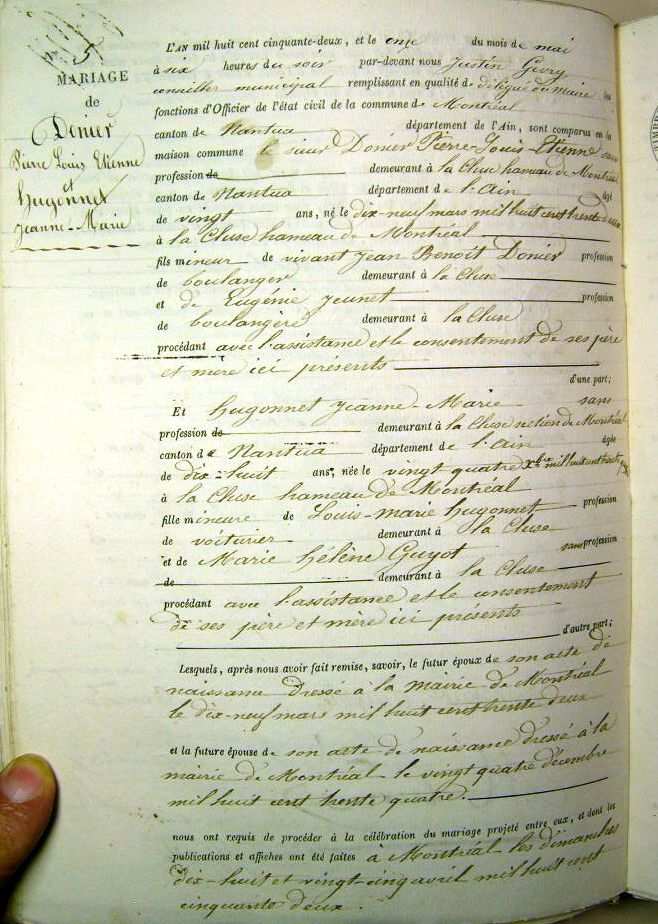 5
MARIAGE
de
Donier
Pierre Louis Etienne
et
hugonnet
Jeanne-Marie
L'AN mil huit cent cinquante-deux, et le onze du mois de mai
à six heures du soir par-devant nous Justin
conseiller municipal remplissant en qualité de délégué du maire les
fonctions d'Officier de l'état civil de la commune de Montréal
canton de Nantua département de l'Ain, sont comparus en la
maison commune le sieur Donier Pierre-Louis-Etienne sans
profession de demeurant à la Cluse hameau de Montréal
canton de Nantua département de l'Ain âgé
de vingt ans, né le dix-neuf mars mil huit cent trente deux
à la Cluse hameau de Montréal
fils mineur de vivant Jean Benoît Donier profession
de boulanger demeurant à la Cluse
et de Eugénie Jeunet profession
de boulangère demeurant à la Cluse
procédant avec l'assistance et le consentement de ses père
et mère ici présents
d'une part;
Et hugonnet Jeanne-Marie sans
profession de demeurant à la Cluse section de Montréal
canton de Nantua département de l'Ain âgée
de dix-huit ans, née le vingt quatre Xbre mil huit cent trente
à la Cluse hameau de Montréal
fille mineure de Louis-marie hugonnet profession
de voiturier demeurant à la Cluse
et de Marie hélène Guyot sans profession
de demeurant à la Cluse
procédant avec l'assistance et le consentement
de ses père et mère ici présents
d'autre part;
Lesquels, après nous avoir fait remise, savoir, le futur époux de son acte de
naissance dressé à la mairie de Montréal
le dix-neuf mars mil huit cent trente deux
et la future épouse de son acte de naissance dressé à la
mairie de Montréal le vingt quatre décembre
mil huit cent trente quatre.
nous ont requis de procéder à la célébration du mariage projeté entre eux, et dont les
publications et affiches ont été faites à Montréal les dimanches
dix-huit et vingt-cinq avril mil huit cent
cinquante deux.